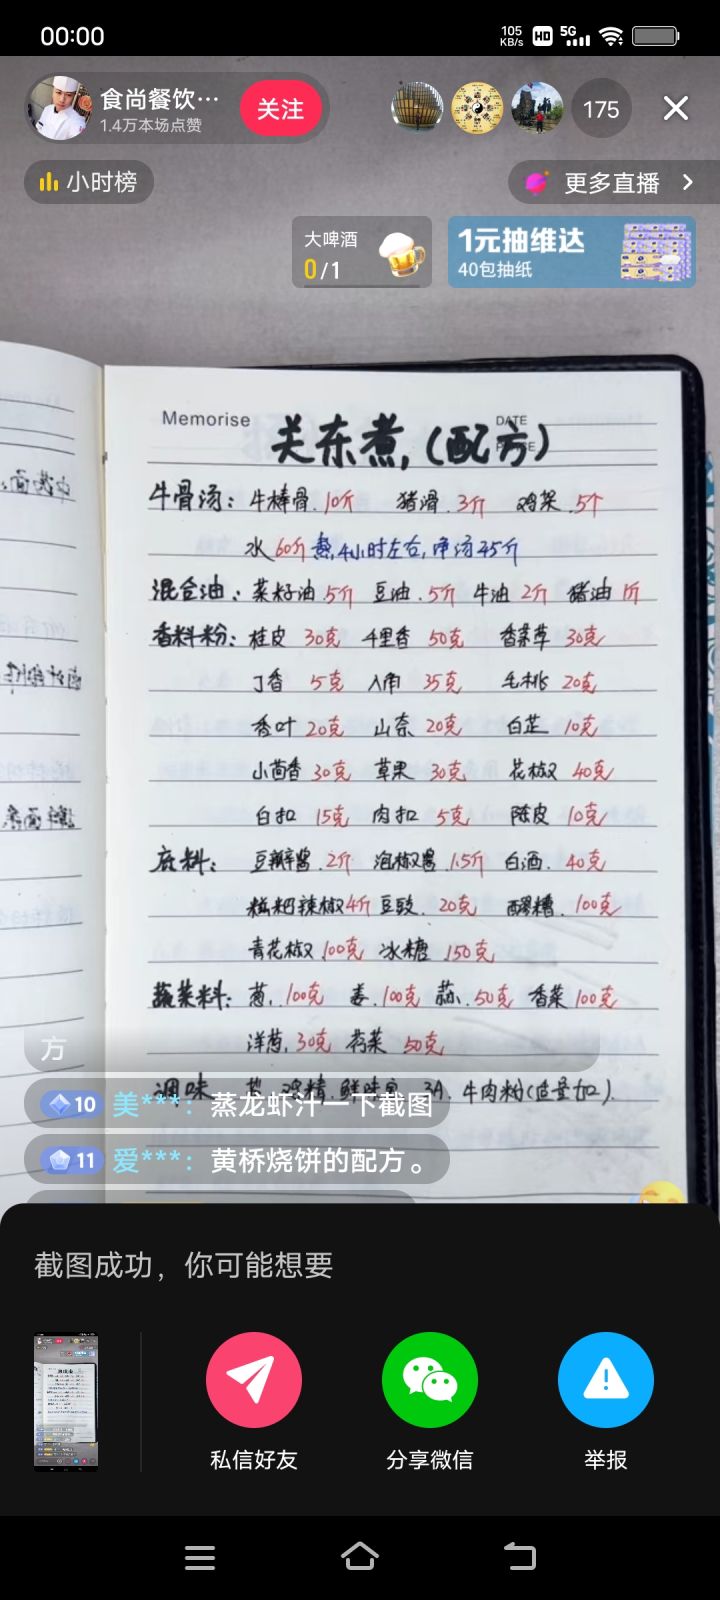 00:00
105 KB/s HD 5G
食尚餐饮…
1.4万本场点赞
关注
175
小时榜
更多直播
大啤酒
0/1
1元抽维达
40包抽纸
Memorise
DATE
关东煮,(配方)
牛骨汤: 牛棒骨.10斤 猪滑.3斤 鸡架.5个
水60斤熬,4小时左右,净汤45斤
混合油: 菜籽油.5斤 豆油.5斤 牛油2斤 猪油1斤
香料粉: 桂皮 30克 千里香 50克 香茅草 30克
丁香 5克 八角 35克 毛桃 20克
香叶20克 山奈 20克 白芷 10克
小茴香 30克 草果 30克 花椒 40克
白扣 15克 肉扣 5克 陈皮 10克
底料: 豆瓣酱.2斤 泡椒酱1.5斤 白酒.40克
糍粑辣椒4斤 豆豉.20克 醪糟.100克
青花椒100克 冰糖 150克
蔬菜料: 葱,.100克 姜.100克 蒜.50克 香菜100克
洋葱,30克 芹菜 50克
方
调味 盐 鸡精.鲜味宝 3A.牛肉粉(适量加).
10 美***: 蒸龙虾汁一下截图
11 爱***: 黄桥烧饼的配方。
截图成功，你可能想要
私信好友
分享微信
举报